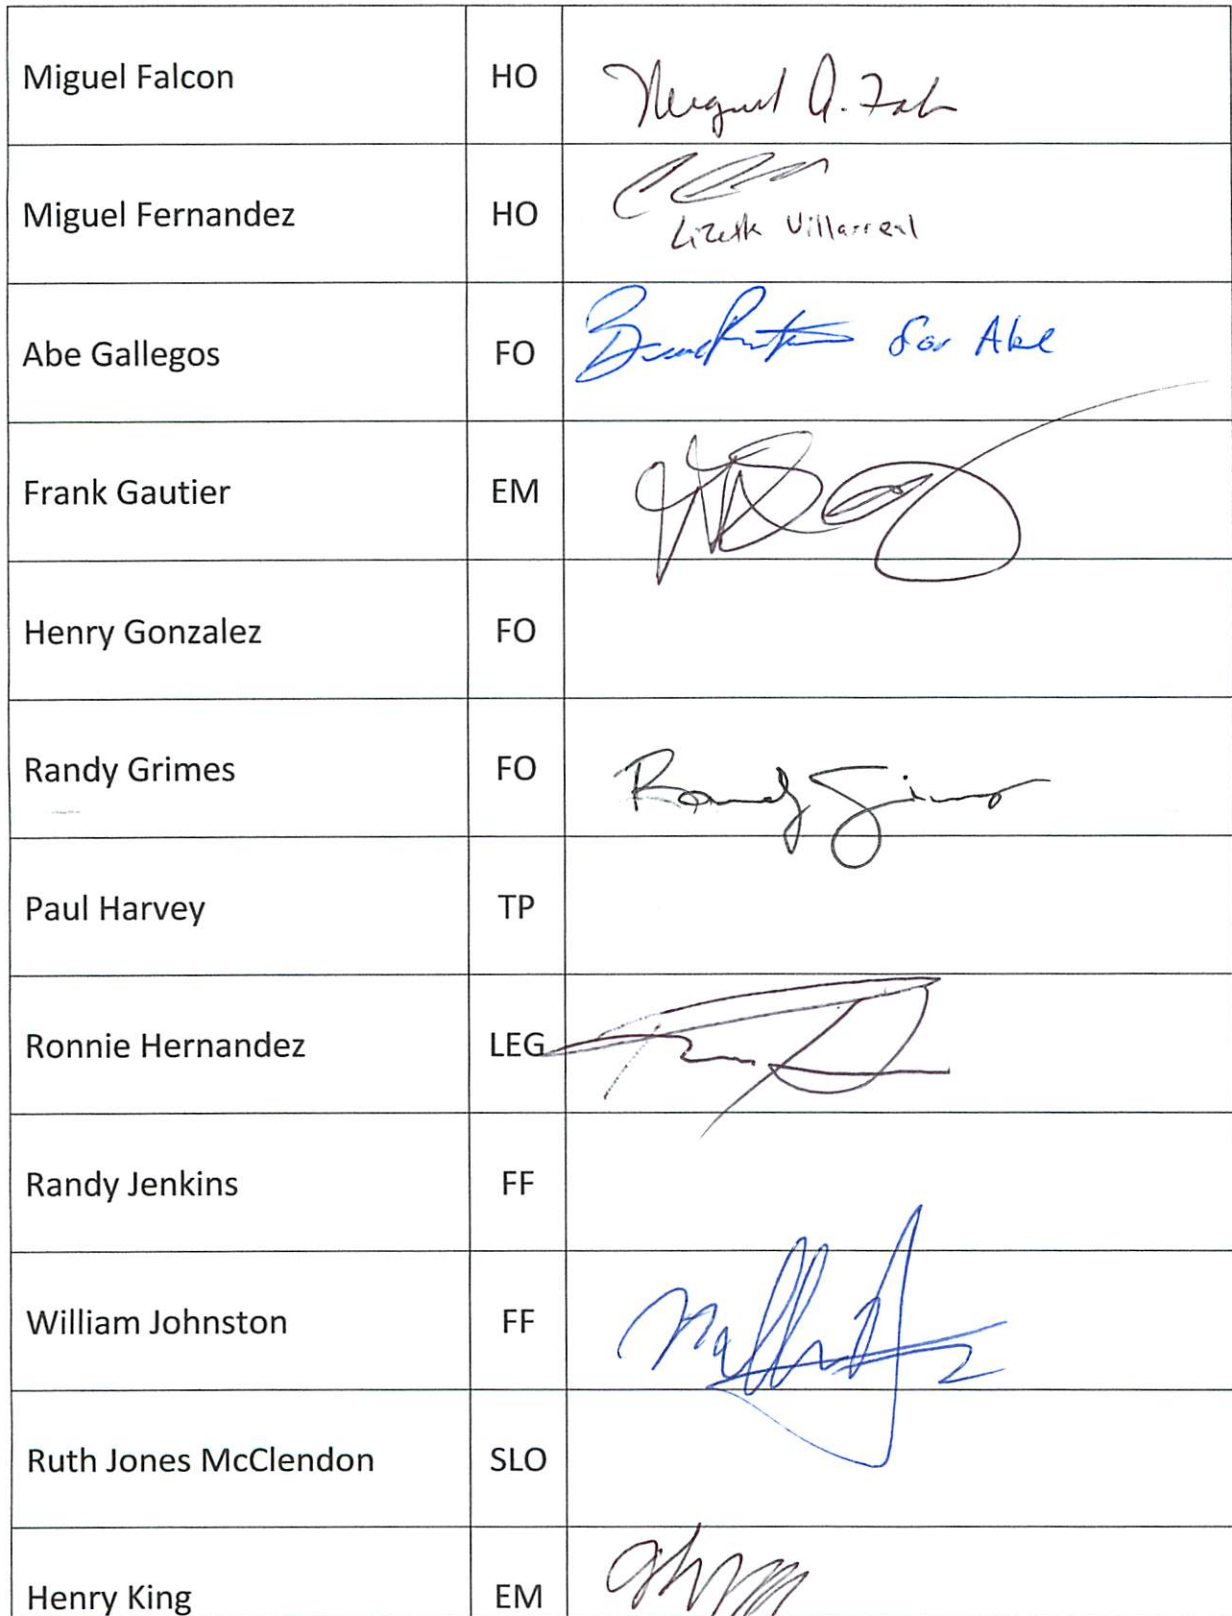 Miguel Falcon HO Miguel A. Fal
Miguel Fernandez HO
Villarreal
Abe Gallegos FO for Abe
Frank Gautier EM
Henry Gonzalez FO
Randy Grimes FO Randy Grimes
Paul Harvey TP
Ronnie Hernandez LEG
Randy Jenkins FF
William Johnston FF
Ruth Jones McClendon SLO
Henry King EM